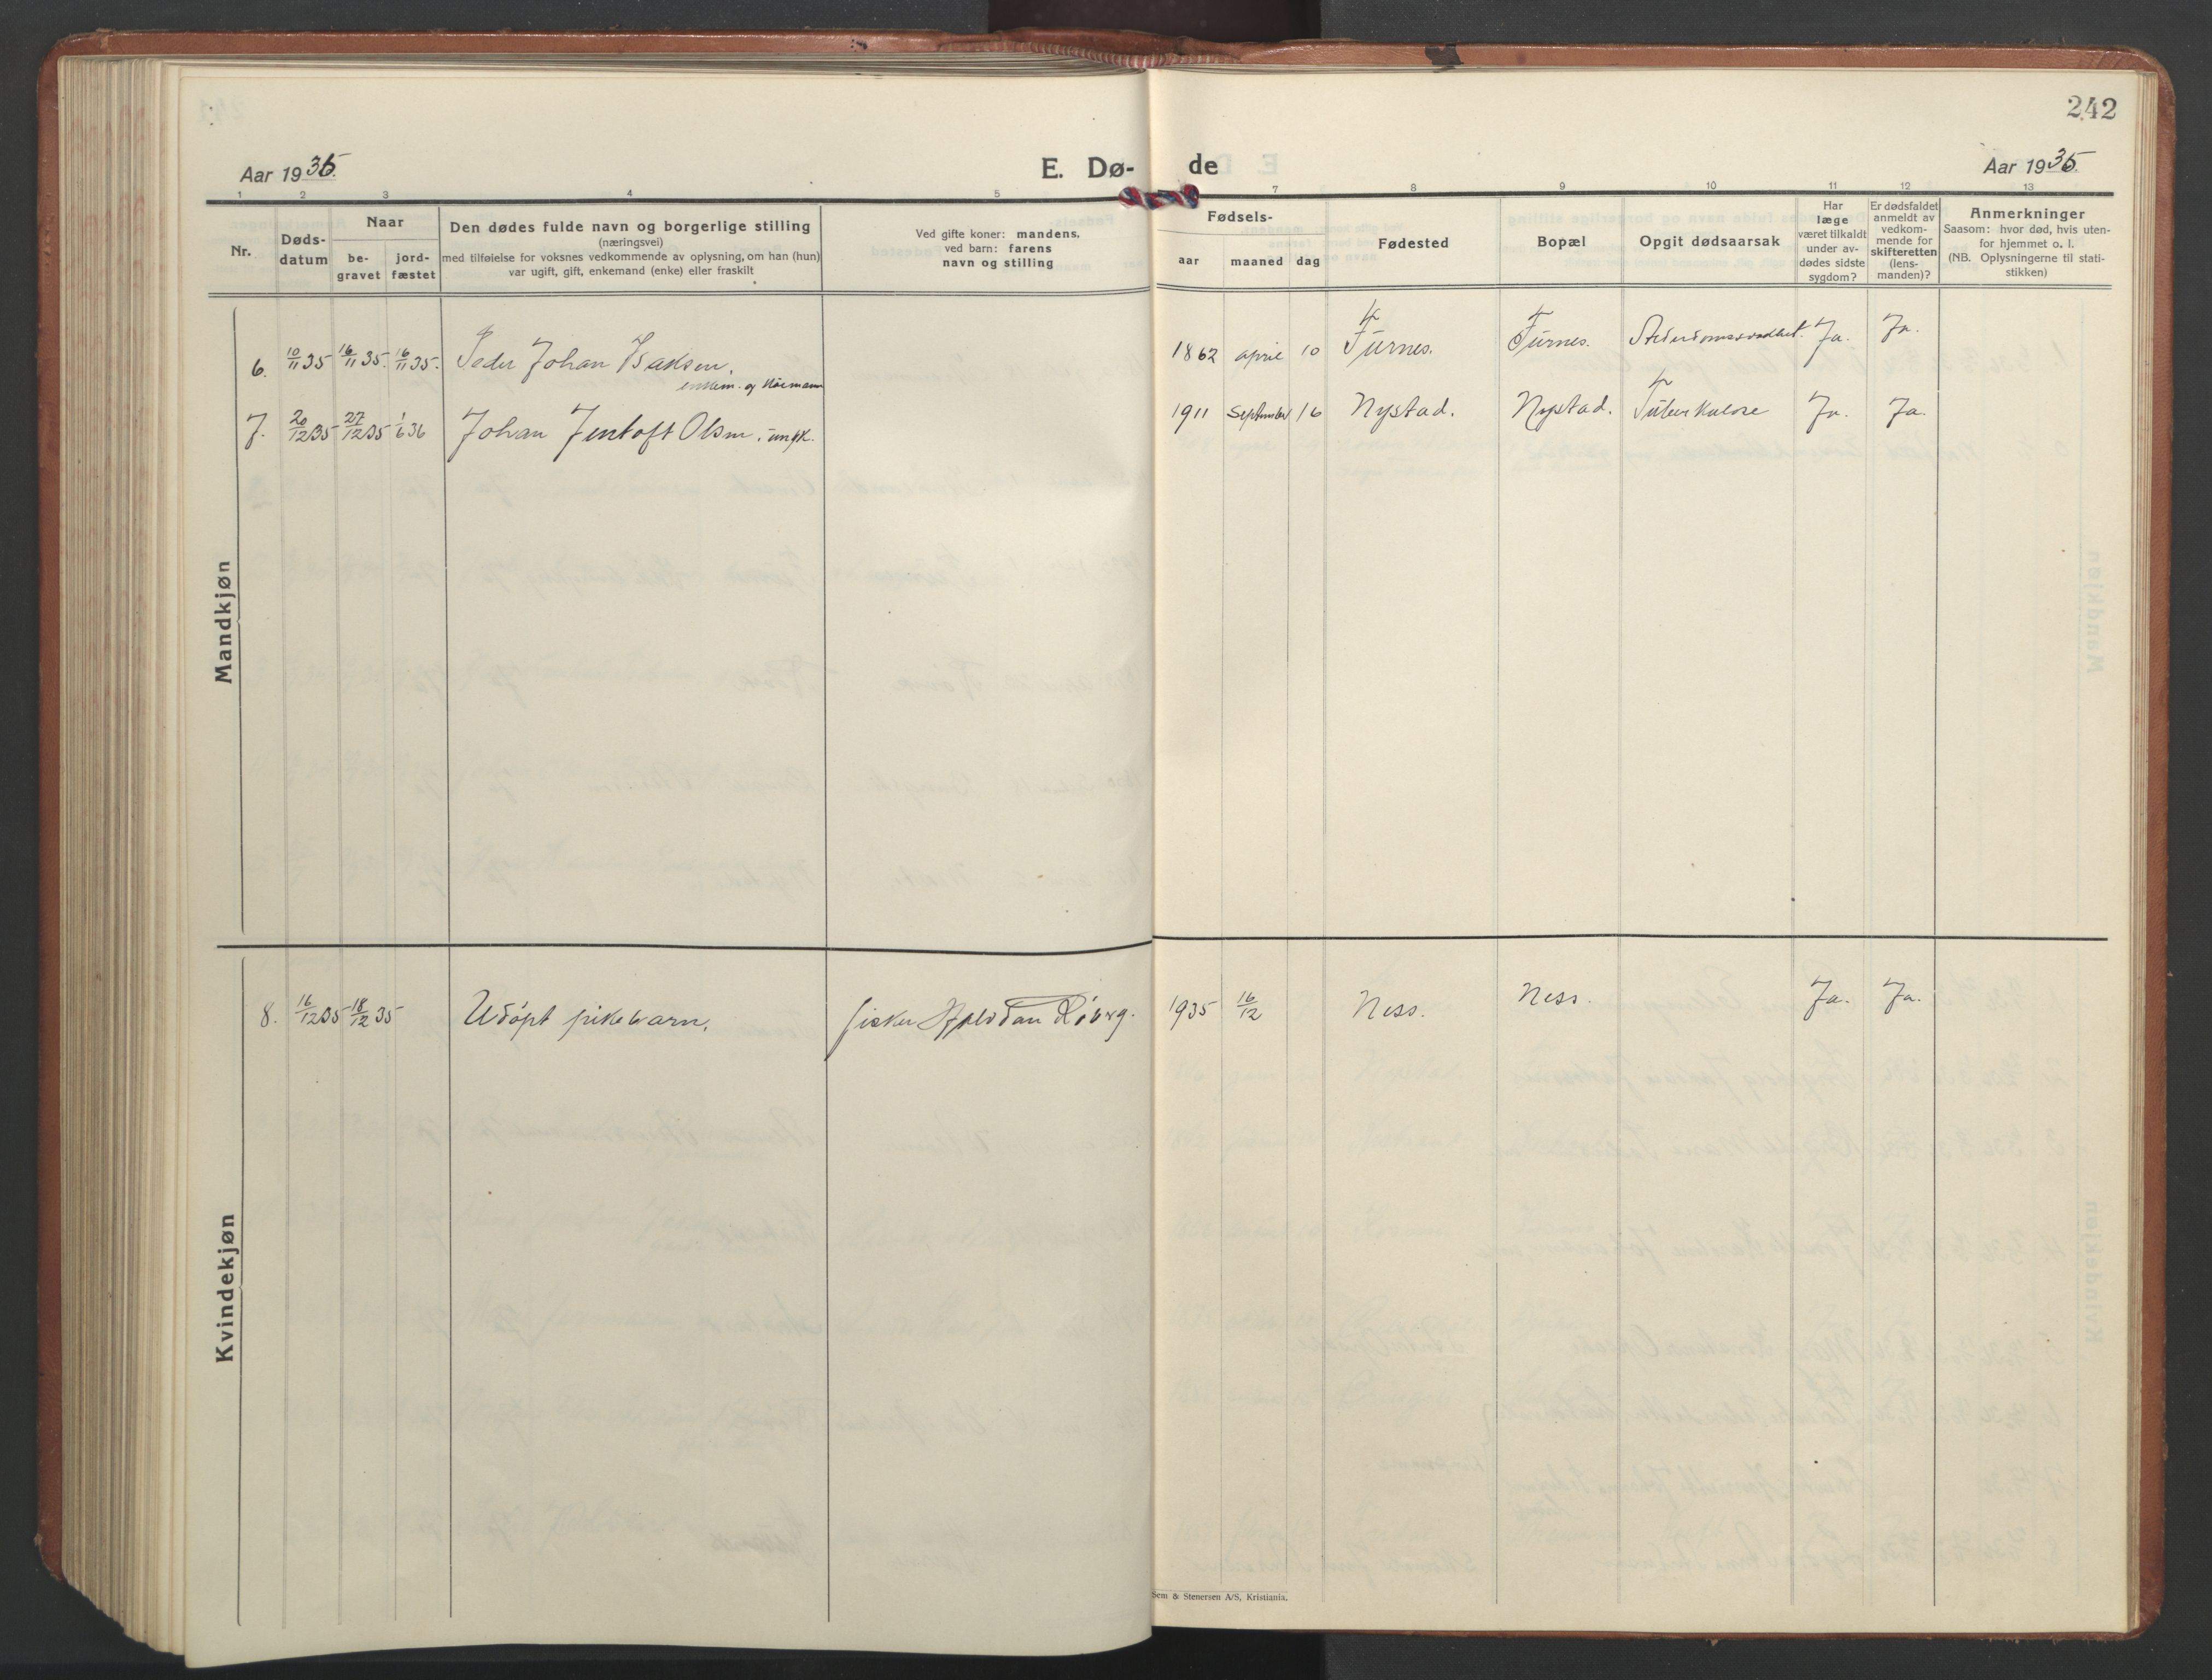 242
Aar 1935.
E. Dø- de
Aar 1935.
1 2 3 4 5 7 8 9 10 11 12 13
Nr.
Døds-
datum
Naar
be-
gravet
jord-
fæstet
Den dødes fulde navn og borgerlige stilling
(næringsvei)
med tilføielse for voksnes vedkommende av oplysning, om han (hun)
var ugift, gift, enkemand (enke) eller fraskilt
Ved gifte koner: mandens,
ved barn: farens
navn og stilling
Fødsels-
aar maaned dag
Fødested
Bopæl
Opgit dødsaarsak
Har
læge
været tilkaldt
under av-
dødes sidste
sygdom?
Er dødsfaldet
anmeldt av
vedkom-
mende for
skifteretten
(lens-
manden)?
Anmerkninger
Saasom: hvor død, hvis uten-
for hjemmet o. l.
(NB. Oplysningerne til stati-
stikken)
Mandkjøn
6. 10/11 35 16/11 35. 16/11 35. Peder Johan Isaksen, 1862 april 10 Furnes. Furnes. Ja. Ja.
enkem. og
7. 20/12 35 27/12 35 1/6 36 Johan Jentoft Olsen, ungk. 1911 September 16 Nystad. Nystad. Tuberkulose Ja. Ja.
Kvindekjøn
8. 16/12 35 18/12 35 Udöpt pikebarn. fisker Halvdan 1935 16/12 Ness. Ness. Ja. Ja.
Sem & Stenersen A/S, Kristiania.